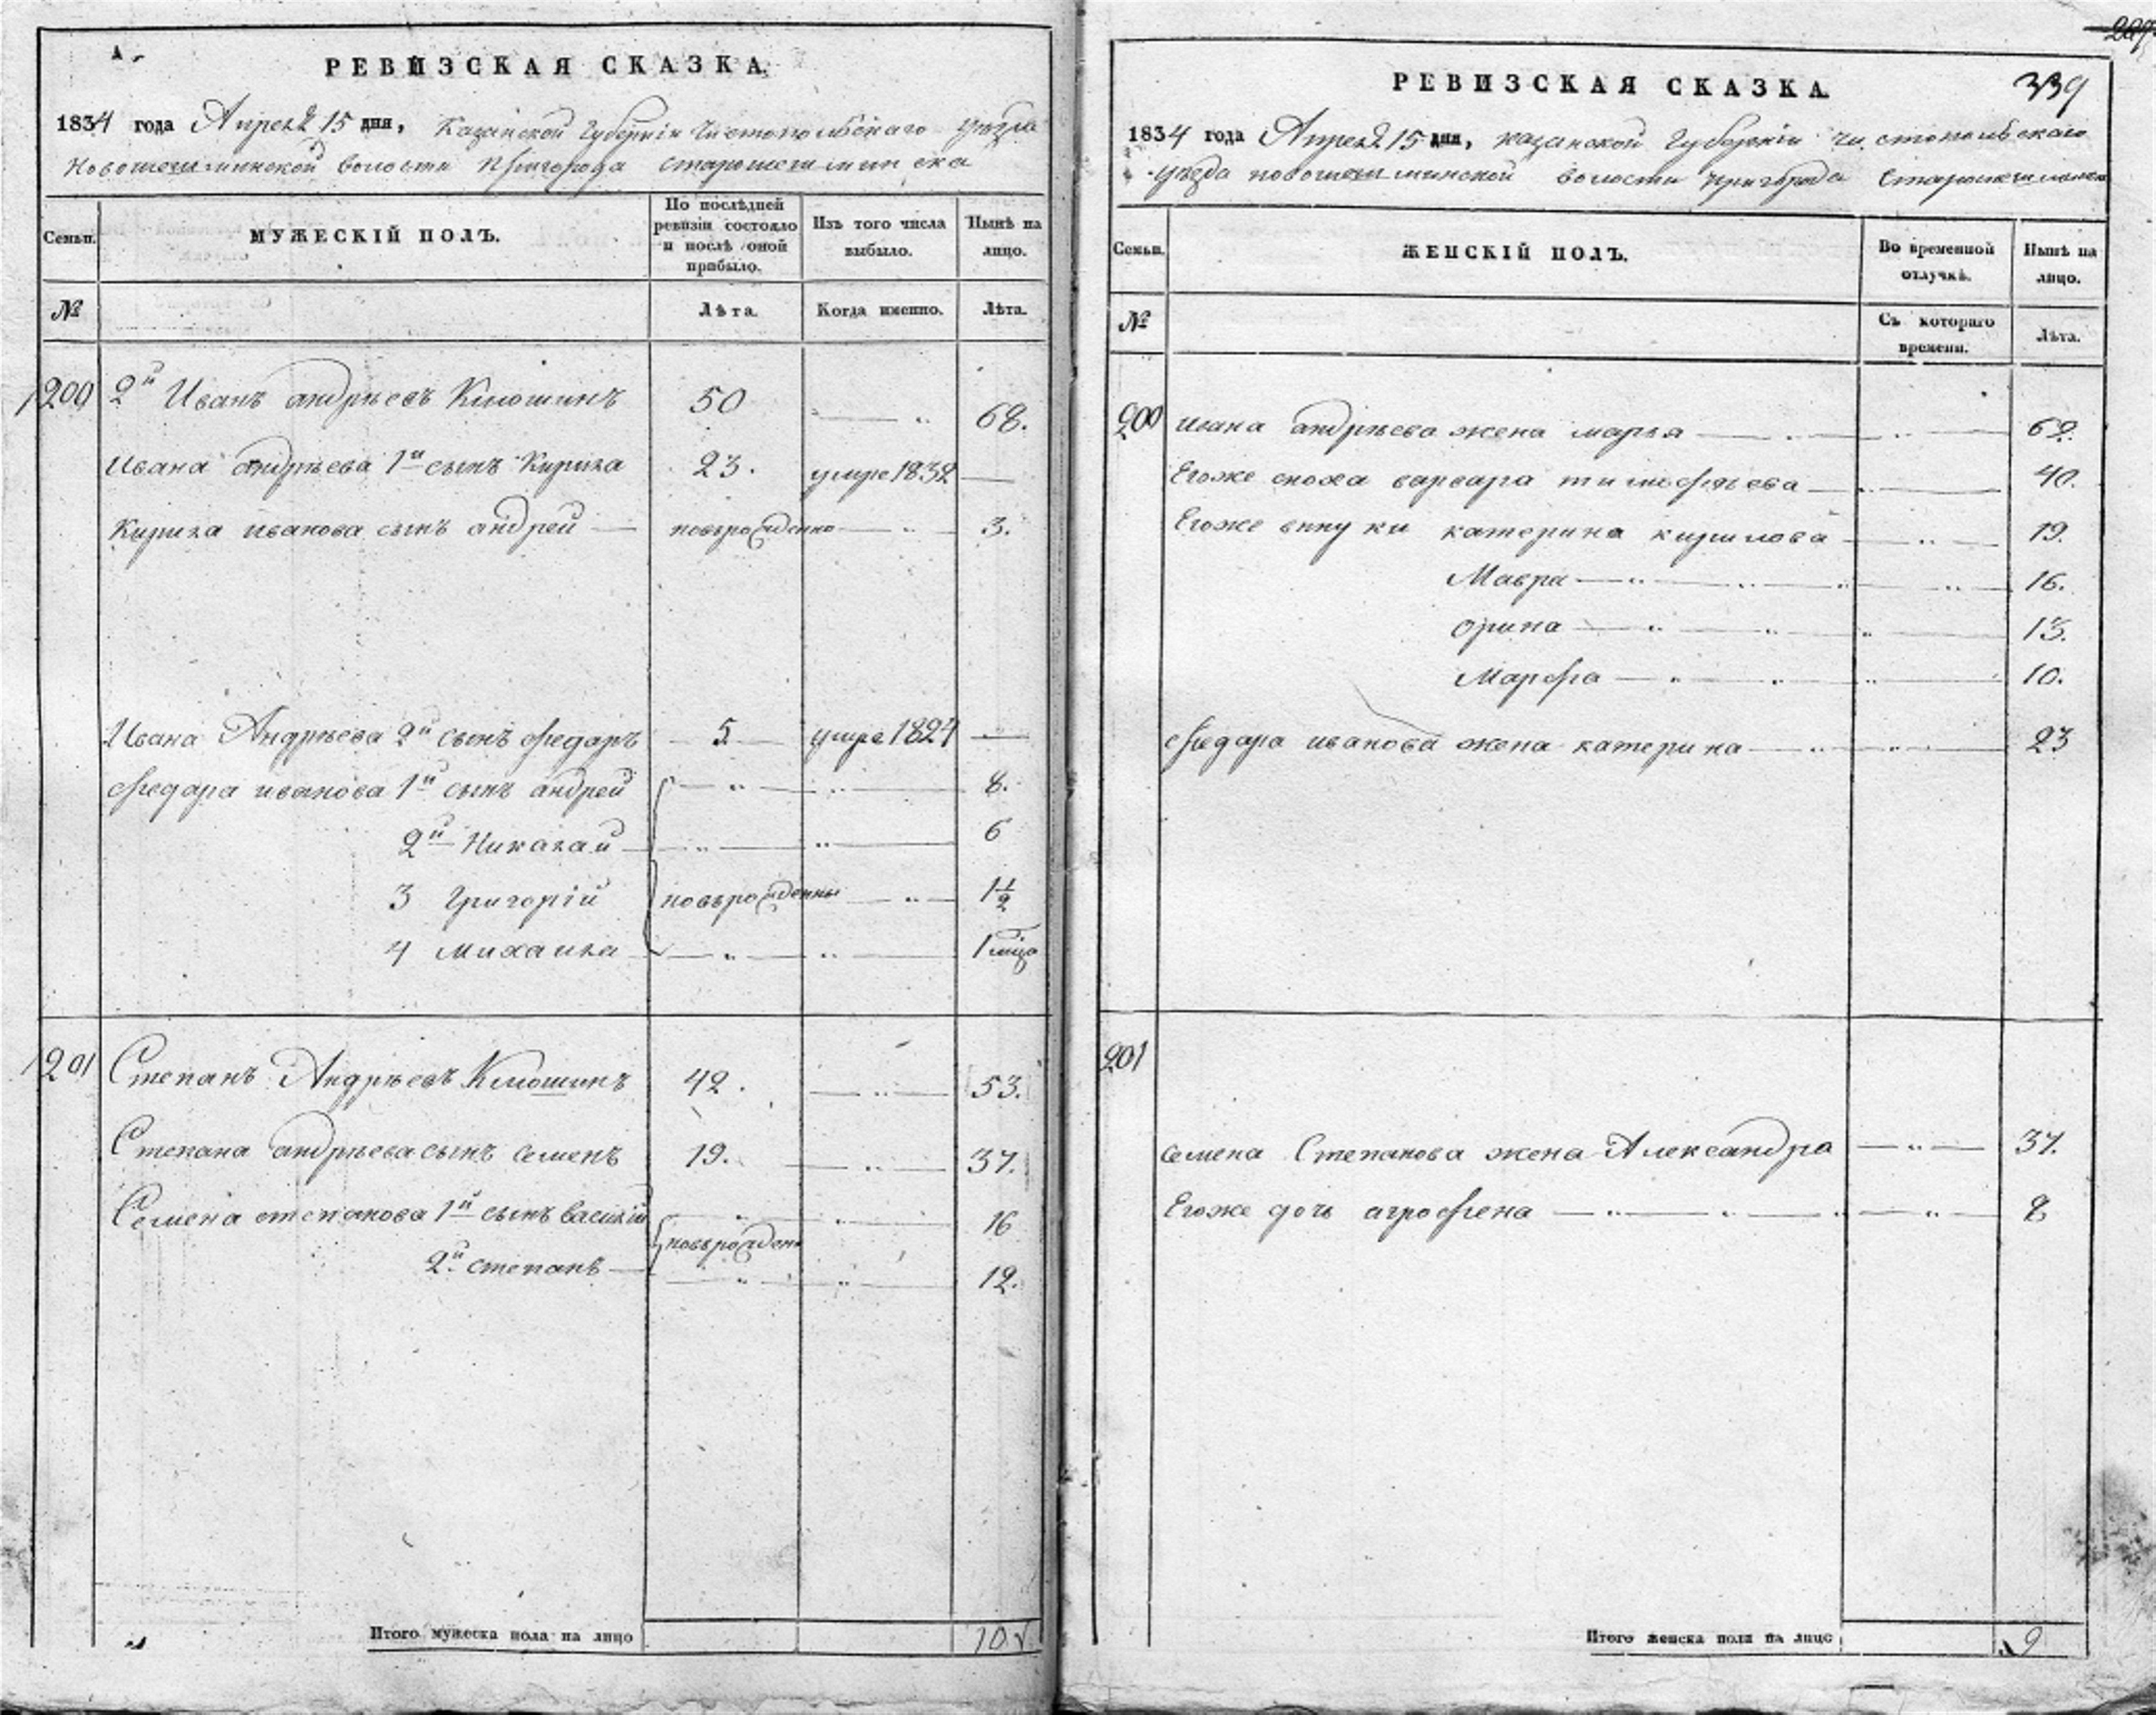 РЕВИЗСКАЯ СКАЗКА.
1834 года Апреля 15 дня, Казанской Губернии Чистопольскаго уезда
Новошешминской волости Пригорода Старошешминска
Семьи.
МУЖЕСКІЙ ПОЛЪ.
По послѣдней ревизіи состояло и послѣ оной прибыло.
Изъ того числа выбыло.
Нынѣ на лицо.
№
Лѣта.
Когда именно.
Лѣта.
200 2й Иванъ андрѣевъ Клюшинъ 50 68.
Ивана андрѣева 1й сынъ Кирила 23. умре 1832
Кирила иванова сынъ андрей новърожденно 3.
Ивана Андрѣева 2й сынъ федаръ 5 умре 1824
федара иванова 1й сынъ андрей 8.
2й Николай 6
3 Григорій новърожденны 1½
4 Михаила 1
201 Степанъ Андрѣевъ Клюшинъ 42. 53.
Степана андрѣева сынъ семенъ 19. 37.
Семена степанова 1й сынъ василій 16
новърожден
2й степанъ 12.
Итого мужеска пола на лицо 10
339
РЕВИЗСКАЯ СКАЗКА
1834 года Апреля 15 дня, казанской Губерніи чистопольскаго
уѣзда новошешминской волости пригорода Старошешминска
Семьи.
ЖЕНСКІЙ ПОЛЪ.
Во временной отлучкѣ.
Нынѣ на лицо.
№
Съ котораго времени.
Лѣта.
200 ивана андрѣева жена марья 62.
Егоже сноха варвара тимофѣева 40.
Егоже внуки катерина кирилова 19.
Мавра 16.
орина 13.
Марфа 10.
федара иванова жена катерина 23
201
семена Степанова жена Александра 37.
Егоже дочь агрофена 8
Итого женска пола на лицо 9